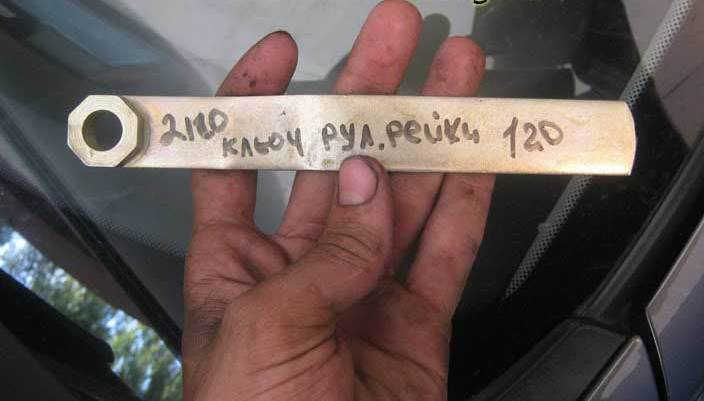 2110 ключ рул.рейки 120